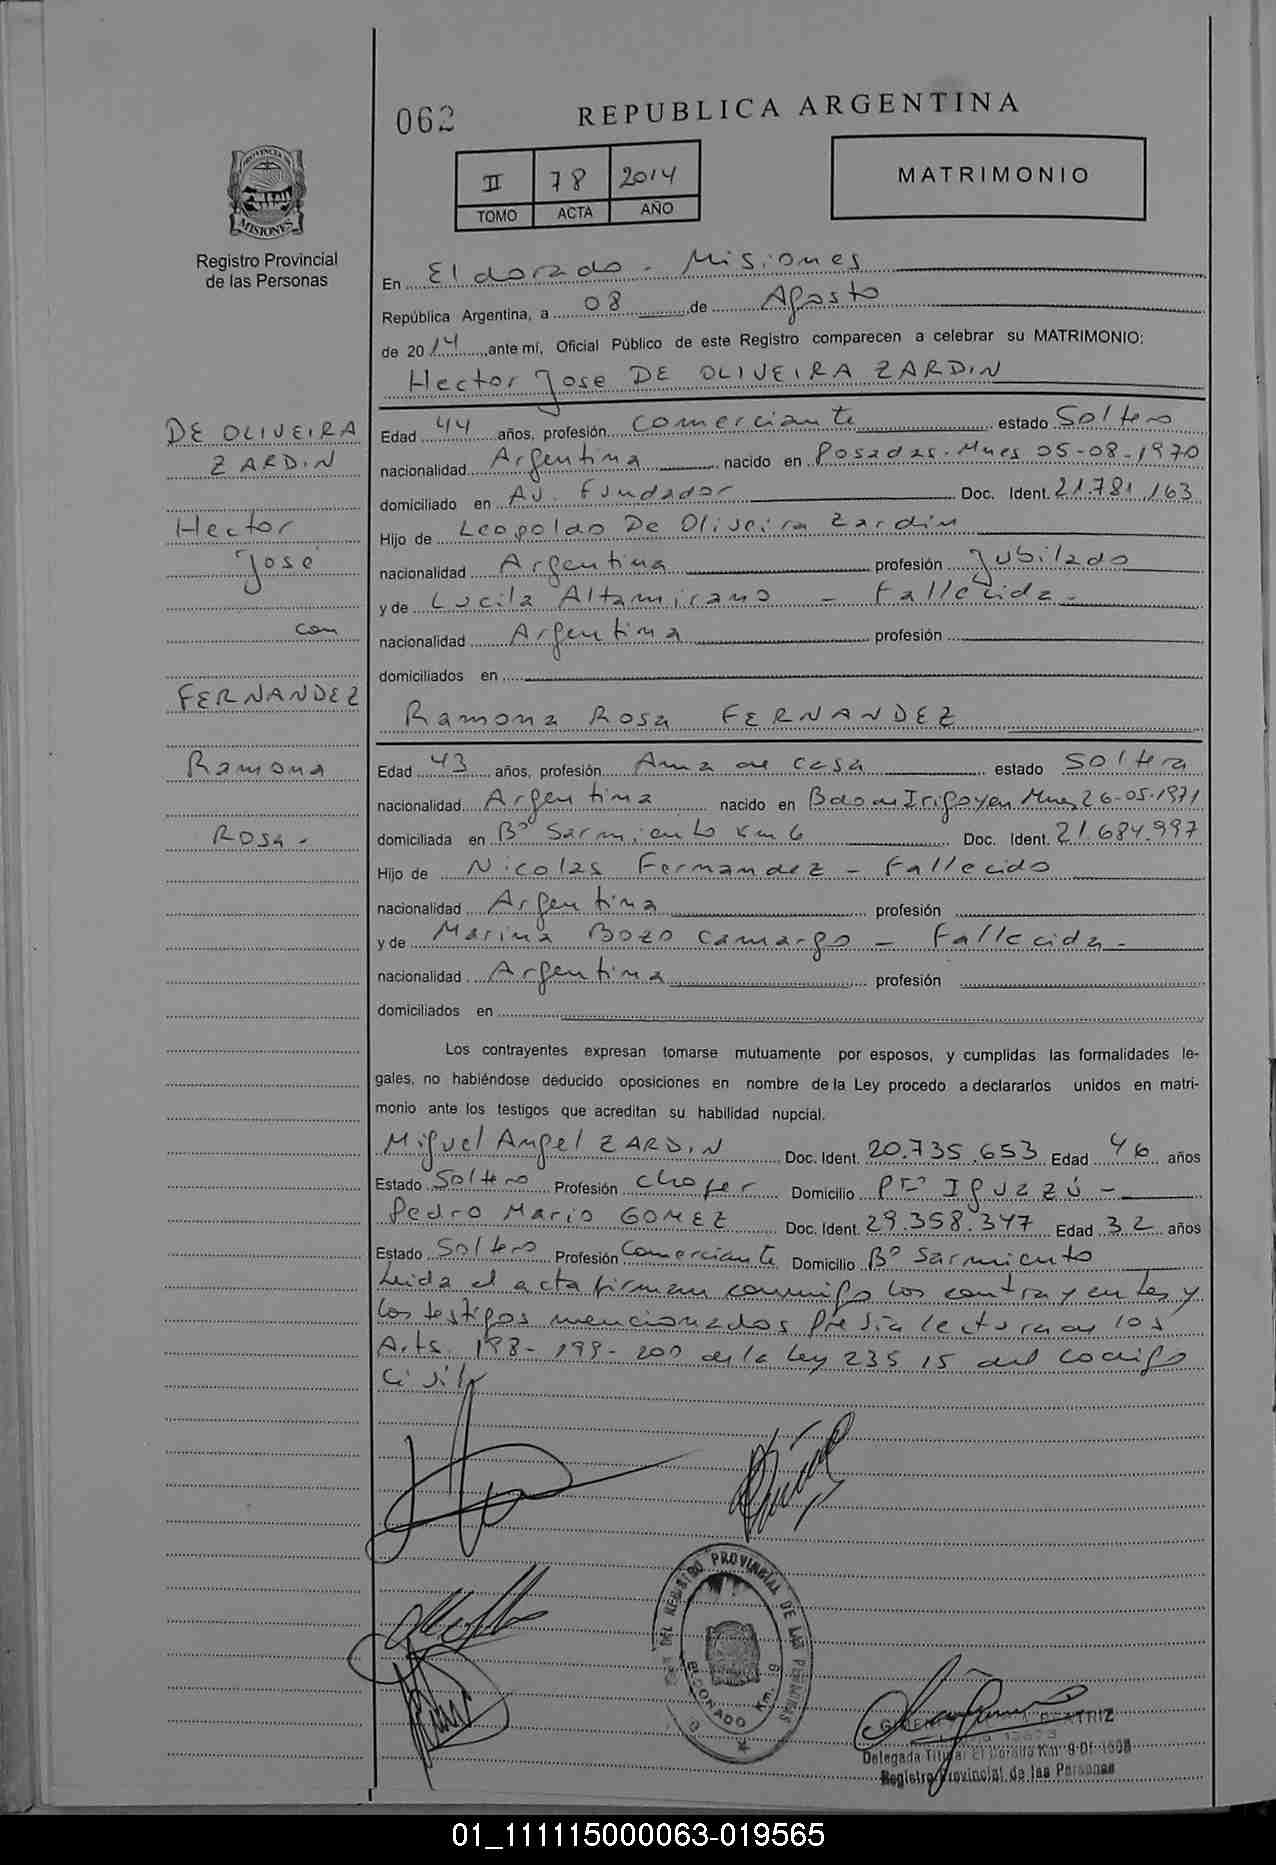 062
REPUBLICA ARGENTINA
II 78 2014
TOMO ACTA AÑO
MATRIMONIO
PROVINCIA DE
MISIONES
Registro Provincial
de las Personas
En Eldorado - Misiones
República Argentina, a 08 de Agosto
de 2014, ante mí, Oficial Público de este Registro comparecen a celebrar su MATRIMONIO:
Hector Jose DE OLIVEIRA ZARDIN
DE OLIVEIRA
ZARDIN
Hector
José
con
FERNANDEZ
Ramona
Rosa -
Edad 44 años, profesión Comerciante estado Soltero
nacionalidad Argentina nacido en Posadas - Mnes 05-08-1970
domiciliado en Av. Fundador Doc. Ident. 21.781.163
Hijo de Leopoldo De Oliveira Zardin
nacionalidad Argentina profesión Jubilado
y de Lucila Altamirano - Fallecida -
nacionalidad Argentina profesión
domiciliados en
Ramona Rosa FERNANDEZ
Edad 43 años, profesión Ama de casa estado Soltera
nacionalidad Argentina nacido en Bdo de Irigoyen Mnes 26-05-1971
domiciliada en Bº Sarmiento Km 6 Doc. Ident. 21.684.997
Hijo de Nicolas Fernandez - Fallecido
nacionalidad Argentina profesión
y de Marina Bozo Camargo - Fallecida -
nacionalidad Argentina profesión
domiciliados en
Los contrayentes expresan tomarse mutuamente por esposos, y cumplidas las formalidades le-
gales, no habiéndose deducido oposiciones en nombre de la Ley procedo a declararlos unidos en matri-
monio ante los testigos que acreditan su habilidad nupcial.
Miguel Angel ZARDIN Doc. Ident. 20.735.653 Edad 46 años
Estado Soltero Profesión Chofer Domicilio Pto Iguazú -
Pedro Mario GOMEZ Doc. Ident. 29.358.347 Edad 32 años
Estado Soltero Profesión Comerciante Domicilio Bº Sarmiento
Leida el acta firman conmigo los contrayentes y
los testigos mencionados previa lectura de los
Arts. 198-199-200 de la Ley 23515 del Codigo
Civil
DEL REGISTRO PROVINCIAL DE LAS PERSONAS
ELDORADO Km. 9
BEATRIZ
Delegada Titular El Dorado Km 9 Of. 1608
Registro Provincial de las Personas
01_111115000063-019565